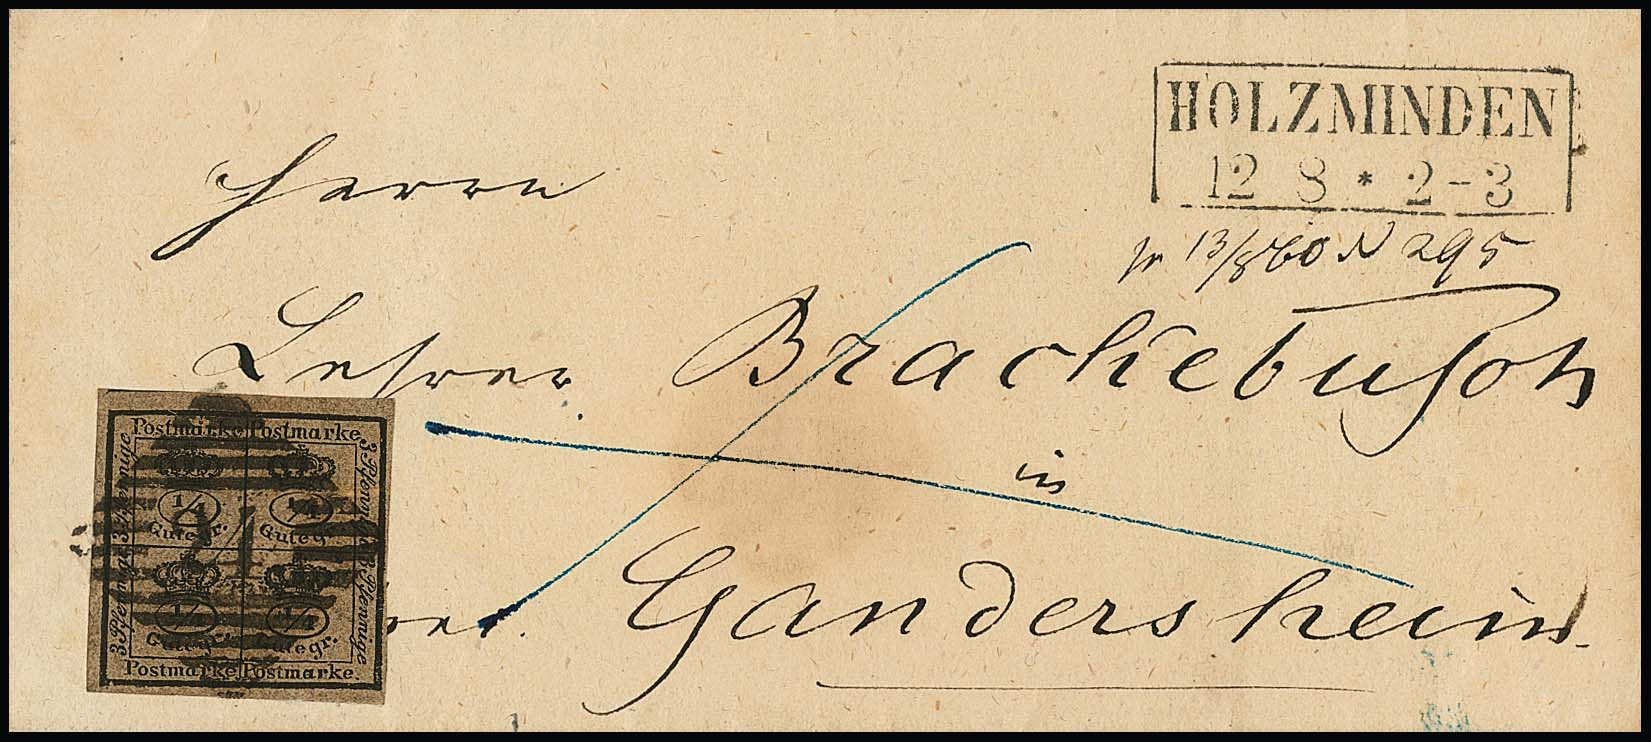 HOLZMINDEN
12 8 * 2-3
Herrn
13/8 60 N 295
Lehrer Brackebusch
in
Gandersheim.
Postmarke Postmarke
3 Pfennige 3 Pfennige
1/4 1/4
Gutegr. Gutegr.
1/4 1/4
Gutegr. Gutegr.
3 Pfennige 3 Pfennige
Postmarke Postmarke.